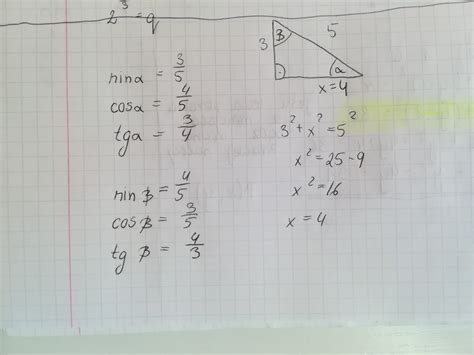 2³ = q
3 5
β
α
x=4
sin α = 3/5
cos α = 4/5
tg α = 3/4
sin β = 4/5
cos β = 3/5
tg β = 4/3
3² + x² = 5²
x² = 25 - 9
x² = 16
x = 4